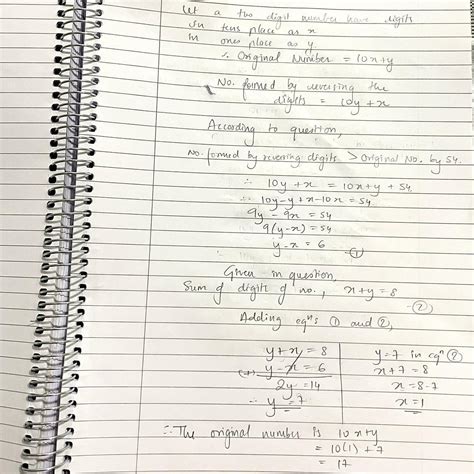 Let a two digit number have digits
in tens place as x
in ones place as y
∴ Original Number = 10x+y
No. formed by reversing the
digits = 10y+x
According to question,
No. formed by reversing digits > Original No. by 54.
∴ 10y+x = 10x+y+54
∴ 10y-y+x-10x=54
9y-9x=54
9(y-x)=54
y-x=6 —①
Given in question
Sum of digits of no., x+y=8 —②
Adding eqⁿs ① and ②,
y+x=8
(+) y-x=6
2y=14
∴ y=7
y=7 in eqⁿ ②
x+7=8
x=8-7
x=1
∴ The original number is 10x+y
= 10(1)+7
= 17